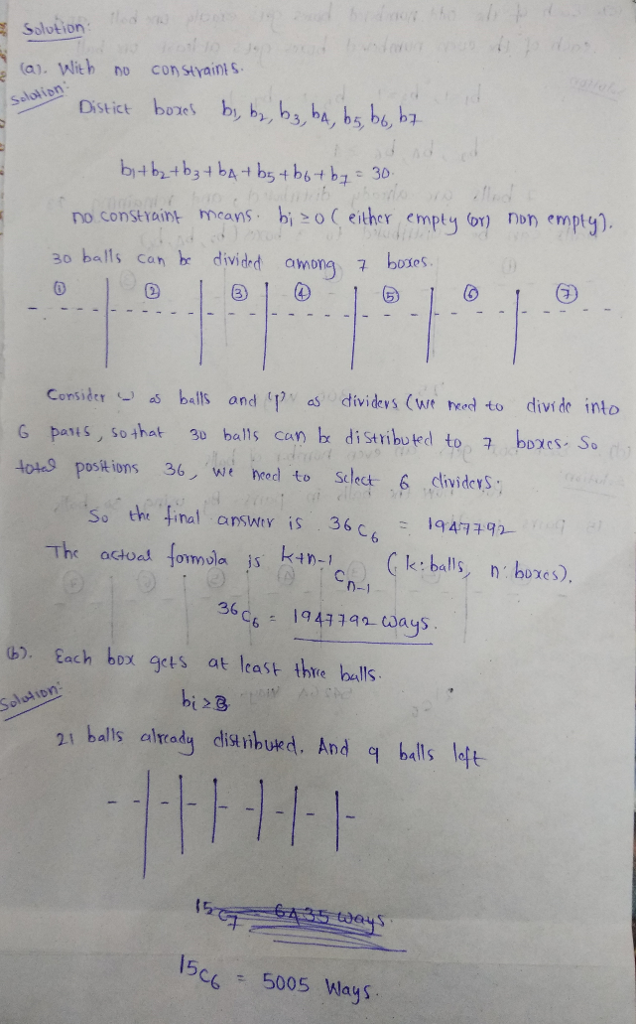 Solution:
(a). With no constraints.
Solution:
Distict boxes b1, b2, b3, b4, b5, b6, b7
b1+b2+b3+b4+b5+b6+b7 = 30.
no constraint means. bi ≥ 0 (either empty (or) non empty).
30 balls can be divided among 7 boxes.
① ② ③ ④ ⑤ ⑥ ⑦
Consider '-' as balls and '|' as dividers (we need to divide into
6 parts, so that 30 balls can be distributed to 7 boxes. So
total positions 36, we need to select 6 dividers.
So the final answer is 36C6 = 1947792
The actual formula is k+n-1Cn-1 (k: balls, n: boxes).
36C6 = 1947792 ways.
(b). Each box gets at least three balls.
Solution:
bi ≥ 3
21 balls already distributed. And 9 balls left
15C7 = 6435 ways
15C6 = 5005 ways.